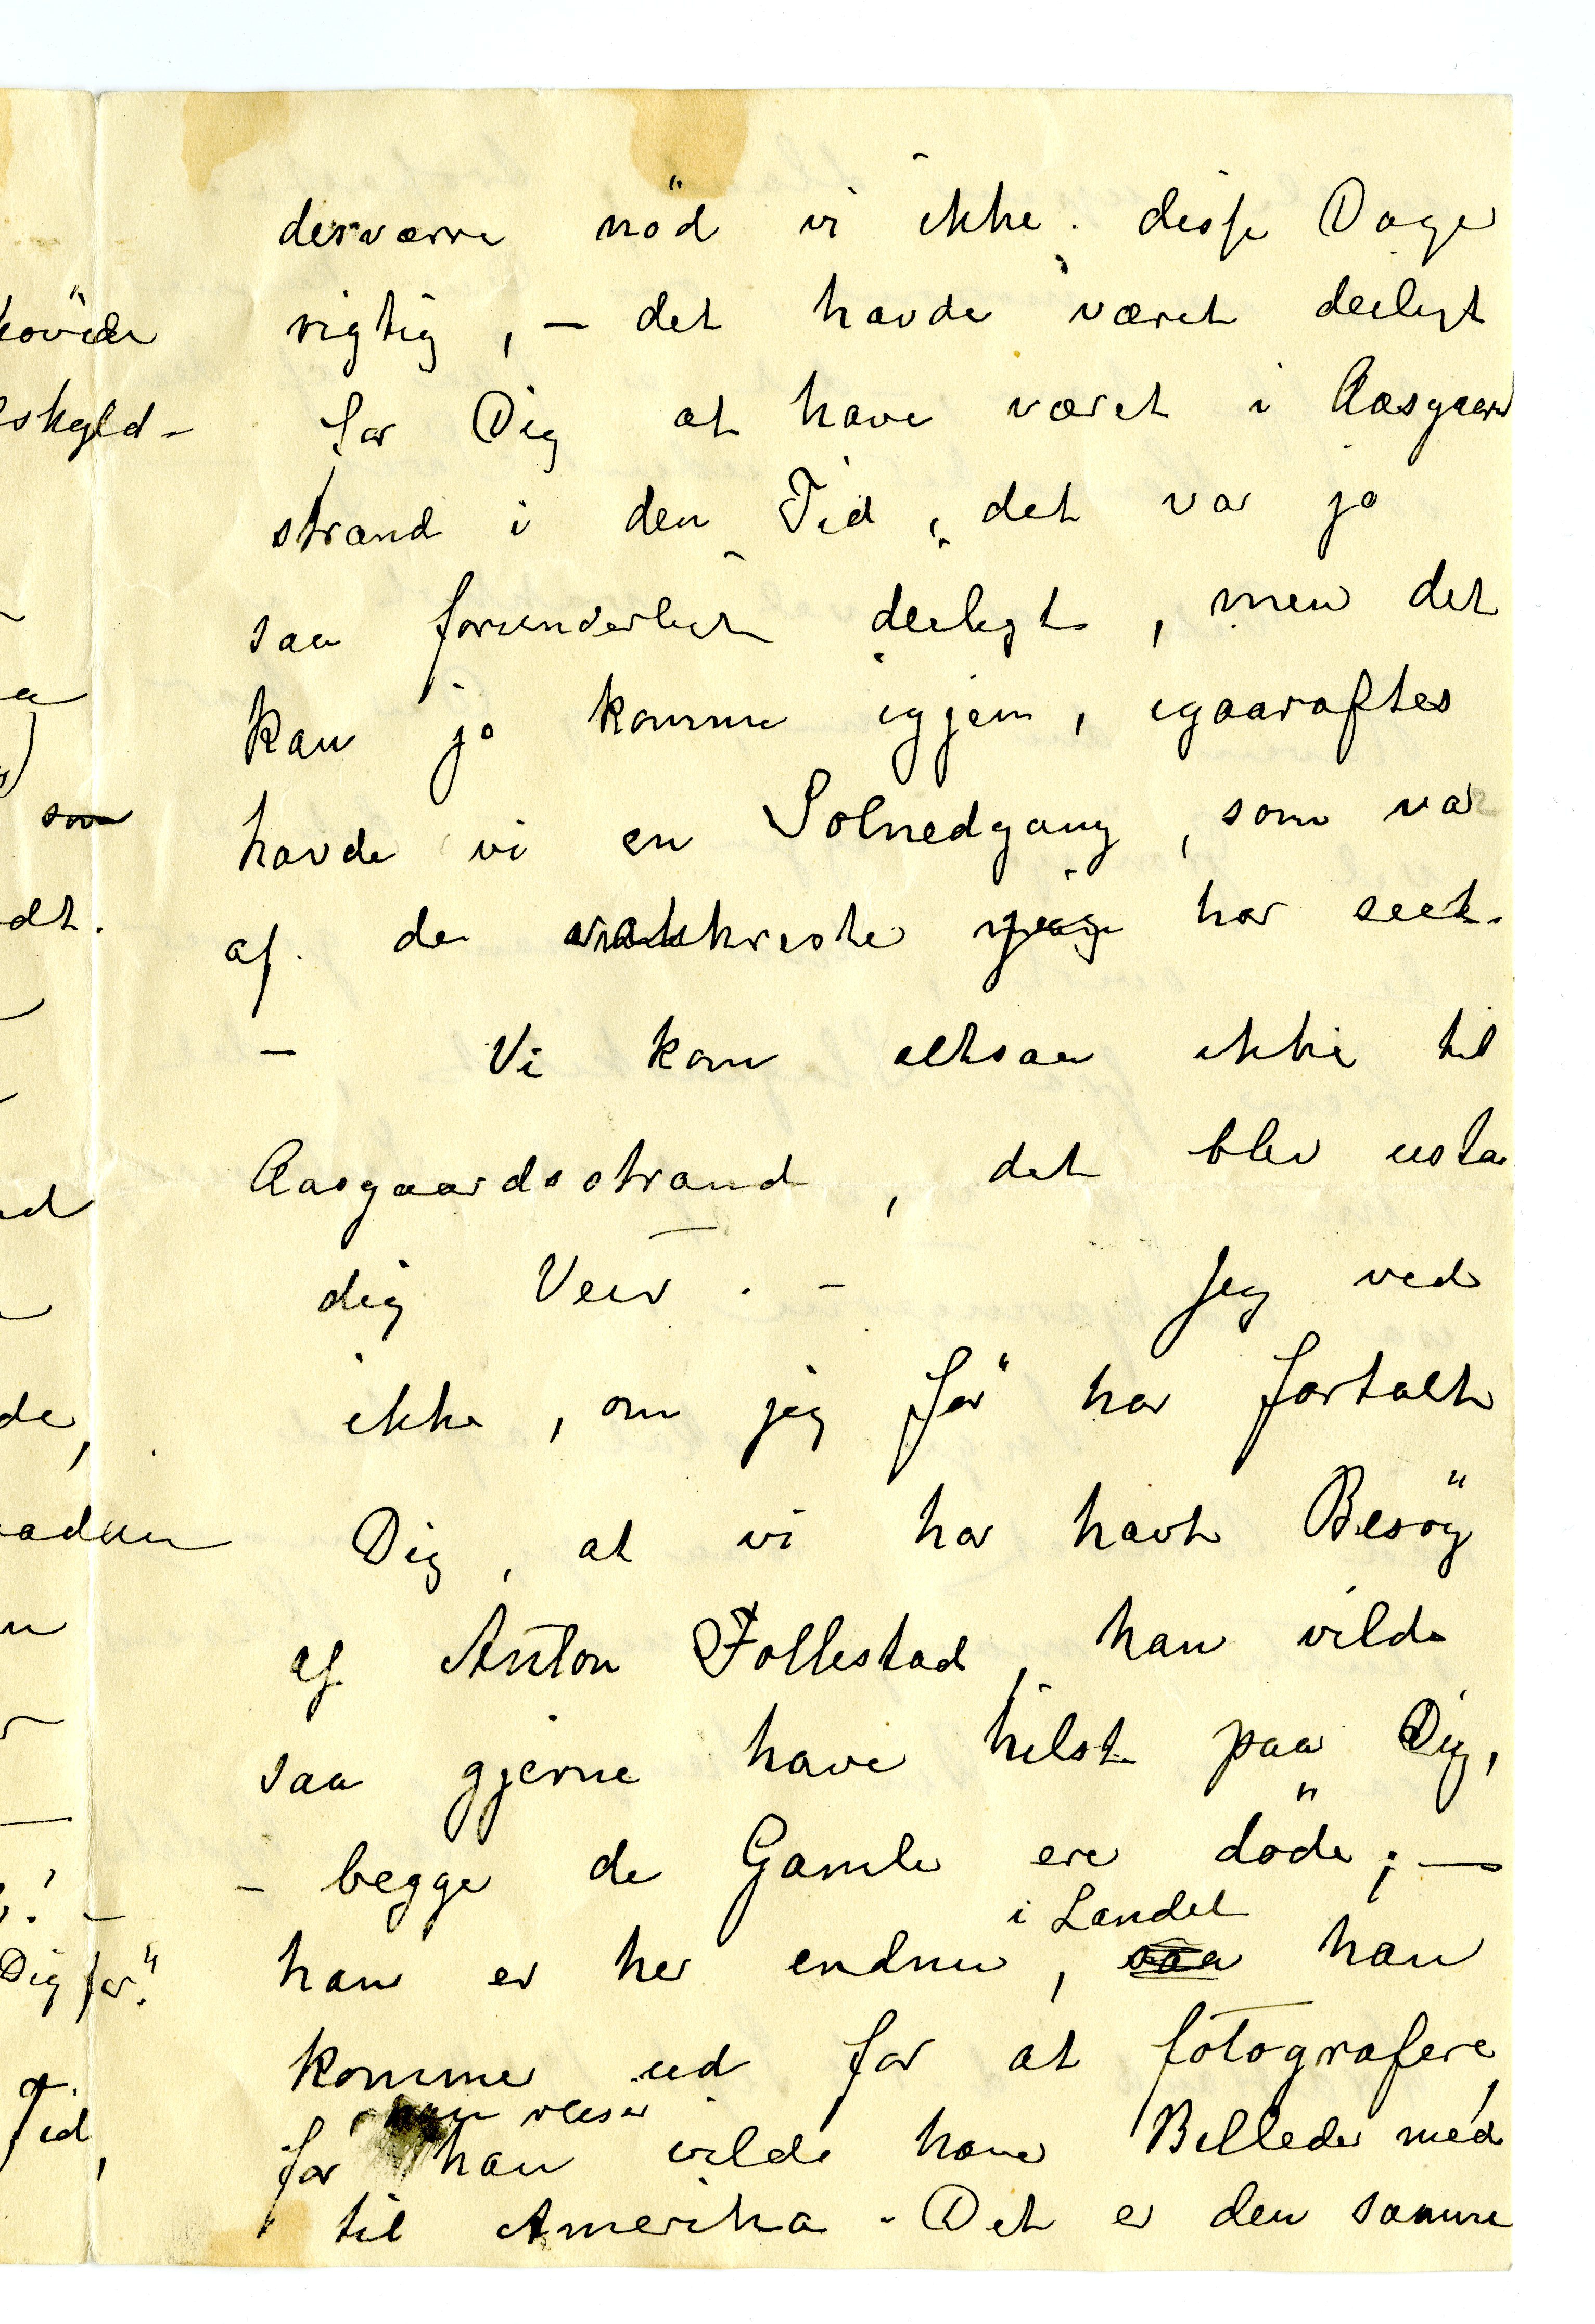 desværre nöd vi ikke disse Dage
rigtig, – det havde været deiligt
for Dig at have været i Aasgaard
strand i den Tid, det var jo
saa forunderligt deiligt, men det
kan jo komme igjen, igaaraftes
havde vi en Solnedgang, som va
af de vakkreste jeg har seet.
– Vi kom altsaa ikke til
Aasgaardsstrand, det blev usta
dig Veir. – Jeg ved
ikke, om jeg för har fortalt
Dig, at vi har havt Besög
af Anton Follestad, han vilde
saa gjerne have hilst paa Dig,
– begge de Gamle ere döde; –
i Landet
han er her endnu, saa han
komme ud for at fotografere,
reiser
for han vilde have Billeder med
til Amerika. Det er den samme
skyld –
som
dt.
de,
Dig för.
Tid,